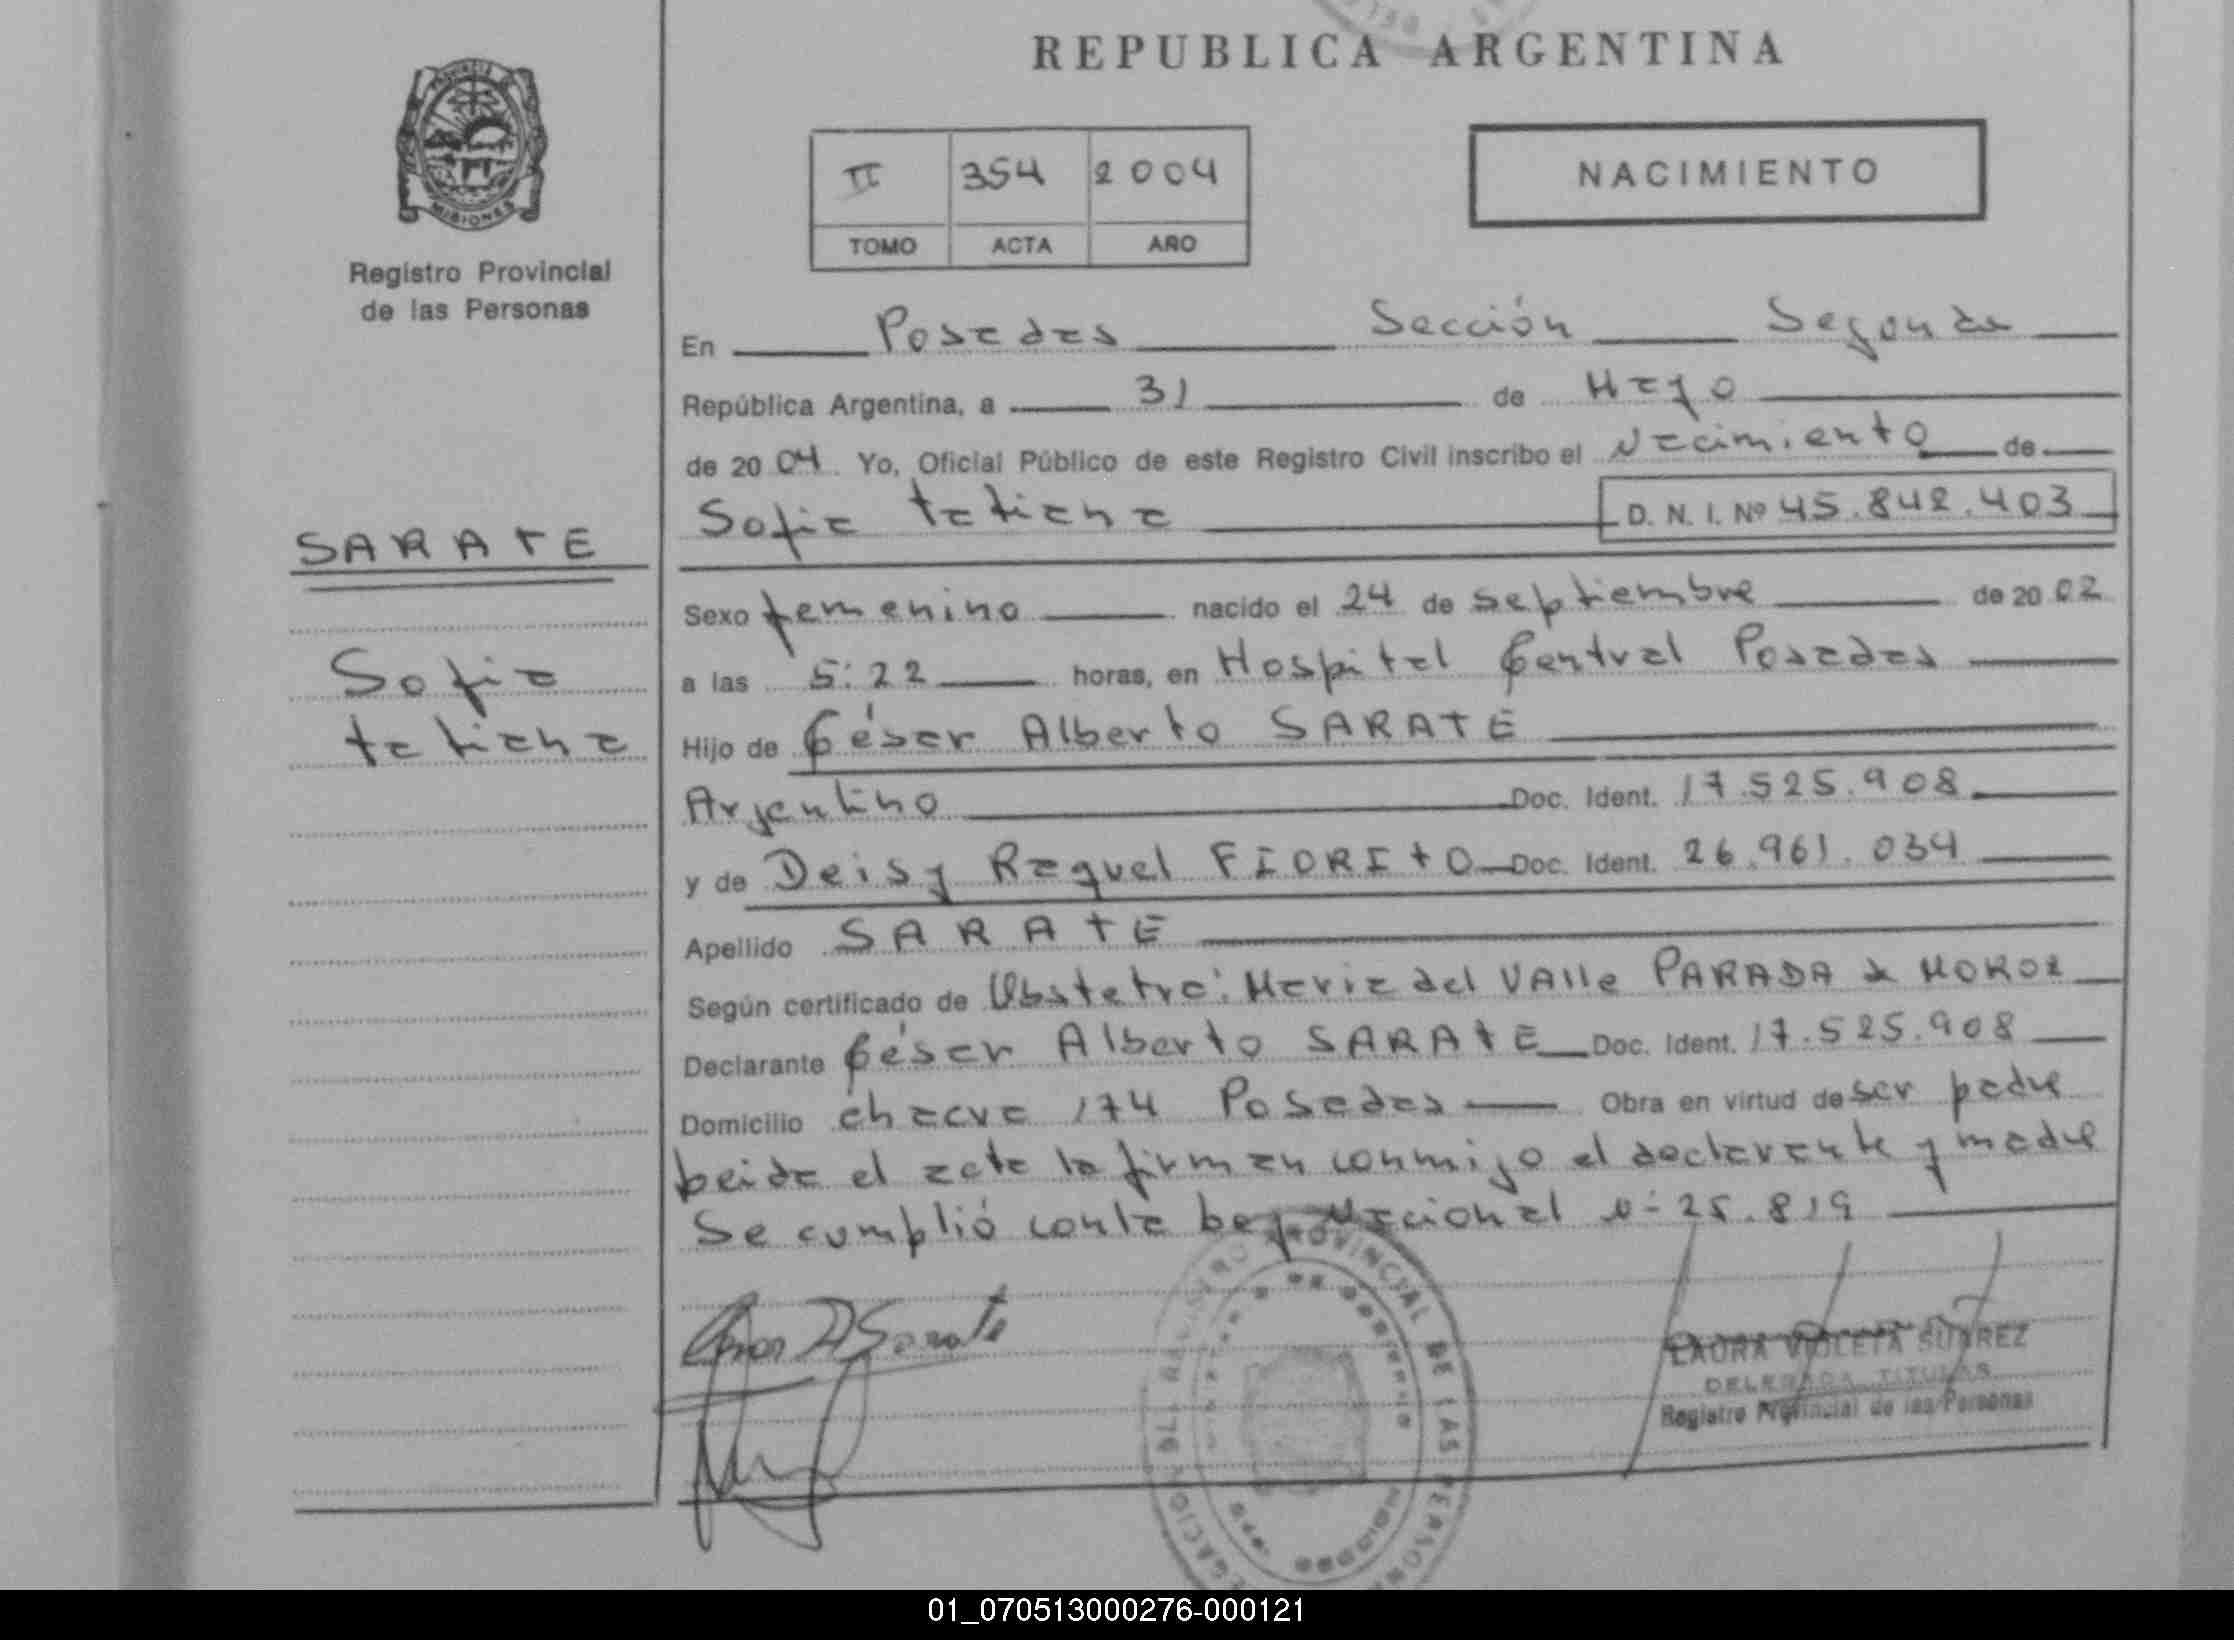 REPUBLICA ARGENTINA
PROVINCIA DE
MISIONES
Registro Provincial
de las Personas
II 354 2004
TOMO ACTA AÑO
NACIMIENTO
En Posadas Sección Segunda
República Argentina, a 31 de Mayo
de 2004 Yo, Oficial Público de este Registro Civil inscribo el Nacimiento de
Sofia tatiana D. N. I. Nº 45.842.403
SARATE
Sofia
tatiana
Sexo femenino nacido el 24 de septiembre de 2002
a las 5:22 horas, en Hospital Central Posadas
Hijo de César Alberto SARATE
Argentino Doc. Ident. 17.525.908
y de Deisy Raquel FIORITO Doc. Ident. 26.961.034
Apellido SARATE
Según certificado de Obstetra: Maria del VAlle PARADA de MOROZ
Declarante César Alberto SARATE Doc. Ident. 17.525.908
Domicilio chacra 174 Posadas Obra en virtud de ser padre
Leida el acta la firman conmigo el declarante y madre
Se cumplió con la Ley Nacional Nº 25.819
LAURA VIOLETA SUAREZ
DELEGADA TITULAR
Registro Provincial de las Personas
REGISTRO PROVINCIAL DE LAS PERSONAS
01_070513000276-000121